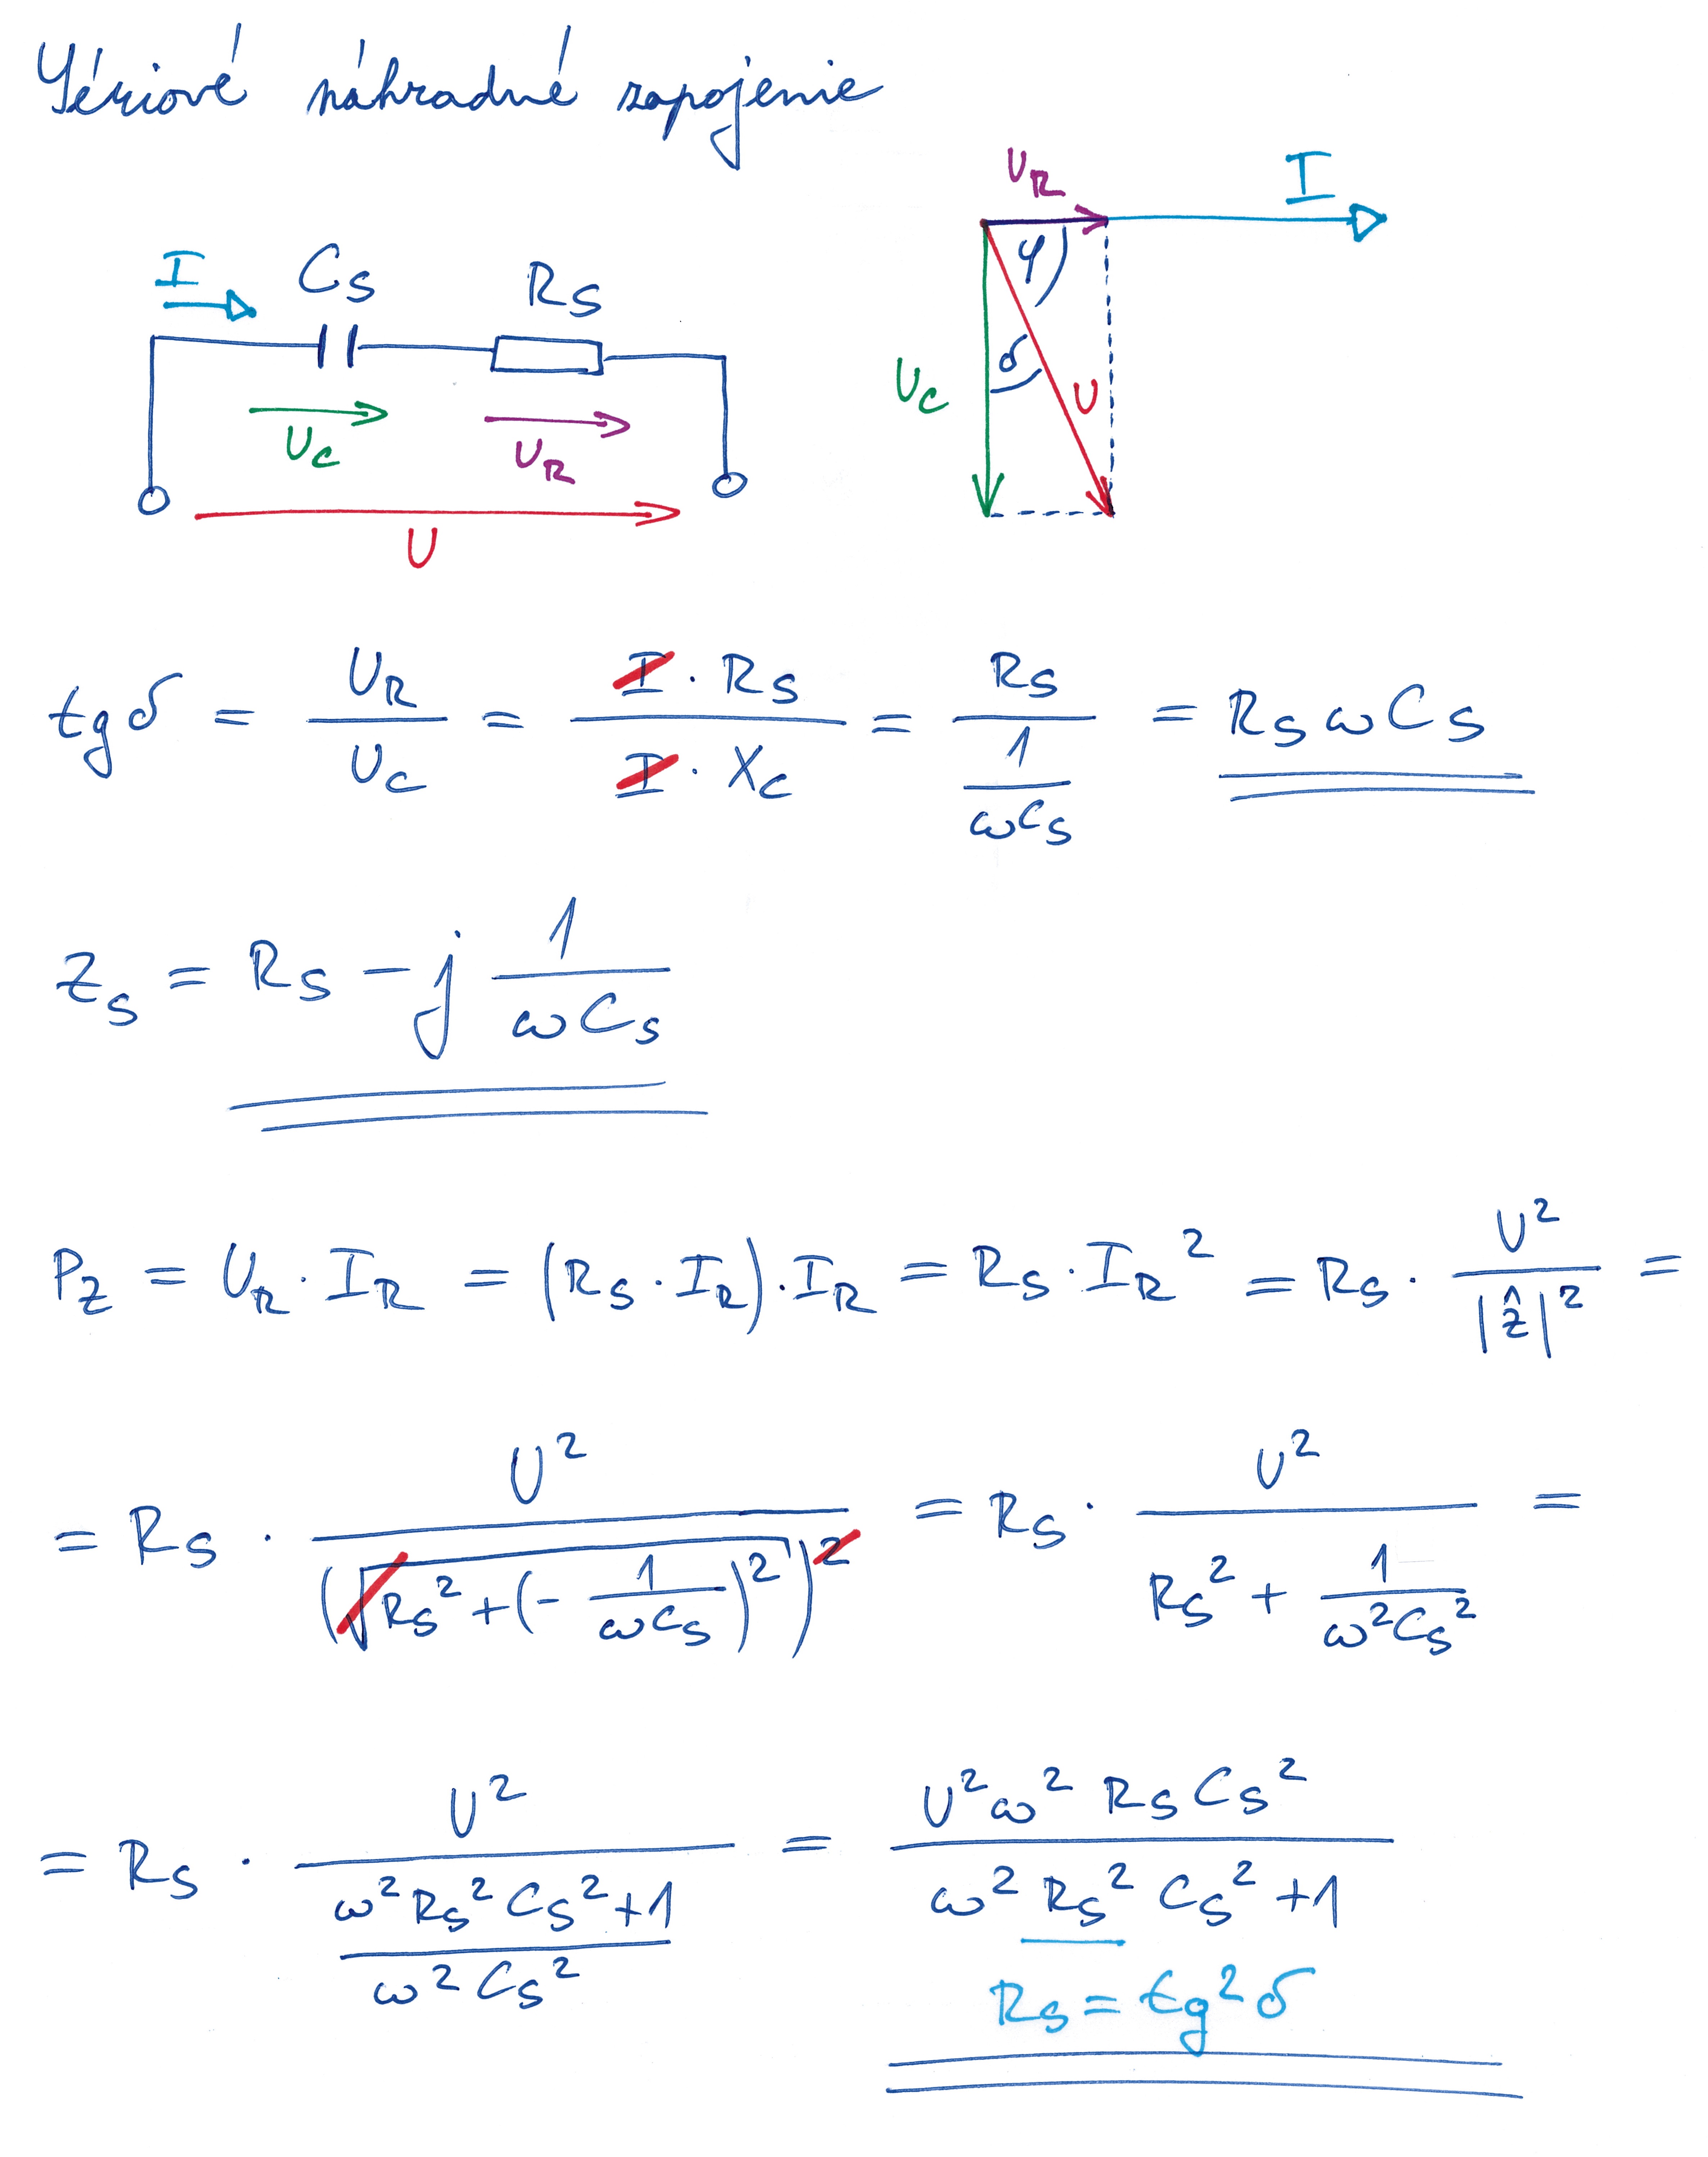 Sériové náhradné zapojenie
U_R I
I C_S R_S φ
U_C δ U
U_C U_R
U
tg δ = U_R / U_C = (I · R_S) / (I · X_C) = R_S / (1 / ωC_S) = R_S ω C_S
Z_S = R_S − j 1 / (ωC_S)
P_Z = U_R · I_R = (R_S · I_R) · I_R = R_S · I_R² = R_S · U² / |Ẑ|² =
= R_S · U² / (√(R_S² + (− 1 / (ωC_S))²))² = R_S · U² / (R_S² + 1 / (ω²C_S²)) =
= R_S · U² / ((ω² R_S² C_S² + 1) / (ω² C_S²)) = (U² ω² R_S C_S²) / (ω² R_S² C_S² + 1)
R_S = tg² δ